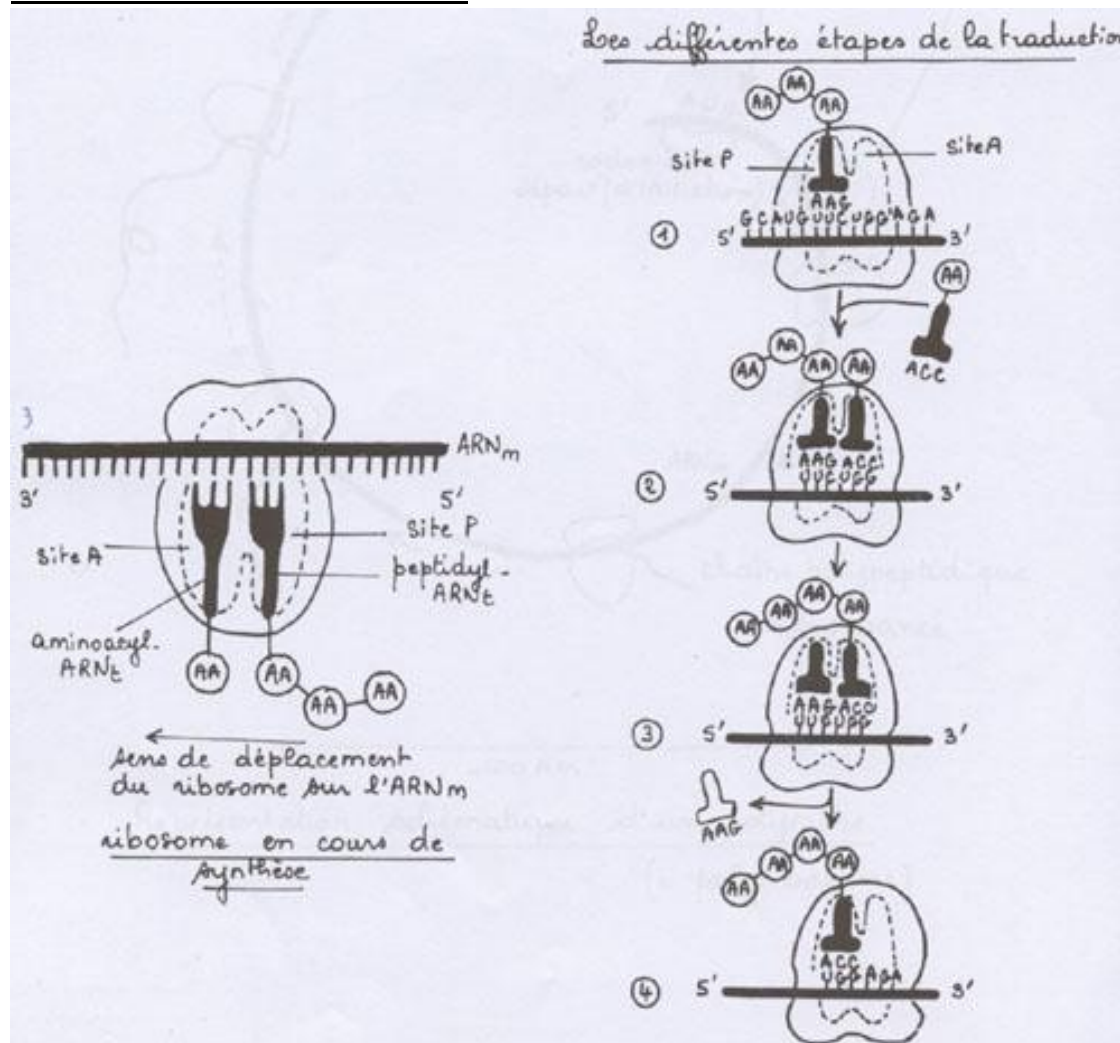 Les différentes étapes de la traduction
AA
AA
AA
site P
site A
AAG
GCAUGUUCUGGAGA
①
5'
3'
AA
ACC
AA
AA
AA
AA
AAG ACC
UUC UGG
②
5'
3'
AA
AA
AA
AA
AAG ACC
UUC UGG
③
5'
3'
AAG
AA
AA
AA
AA
ACC
UGG AGA
④
5'
3'
3
ARNm
3'
5'
site A
site P
peptidyl-
ARNt
aminoacyl-
ARNt
AA
AA
AA
AA
sens de déplacement
du ribosome sur l'ARNm
ribosome en cours de
synthèse